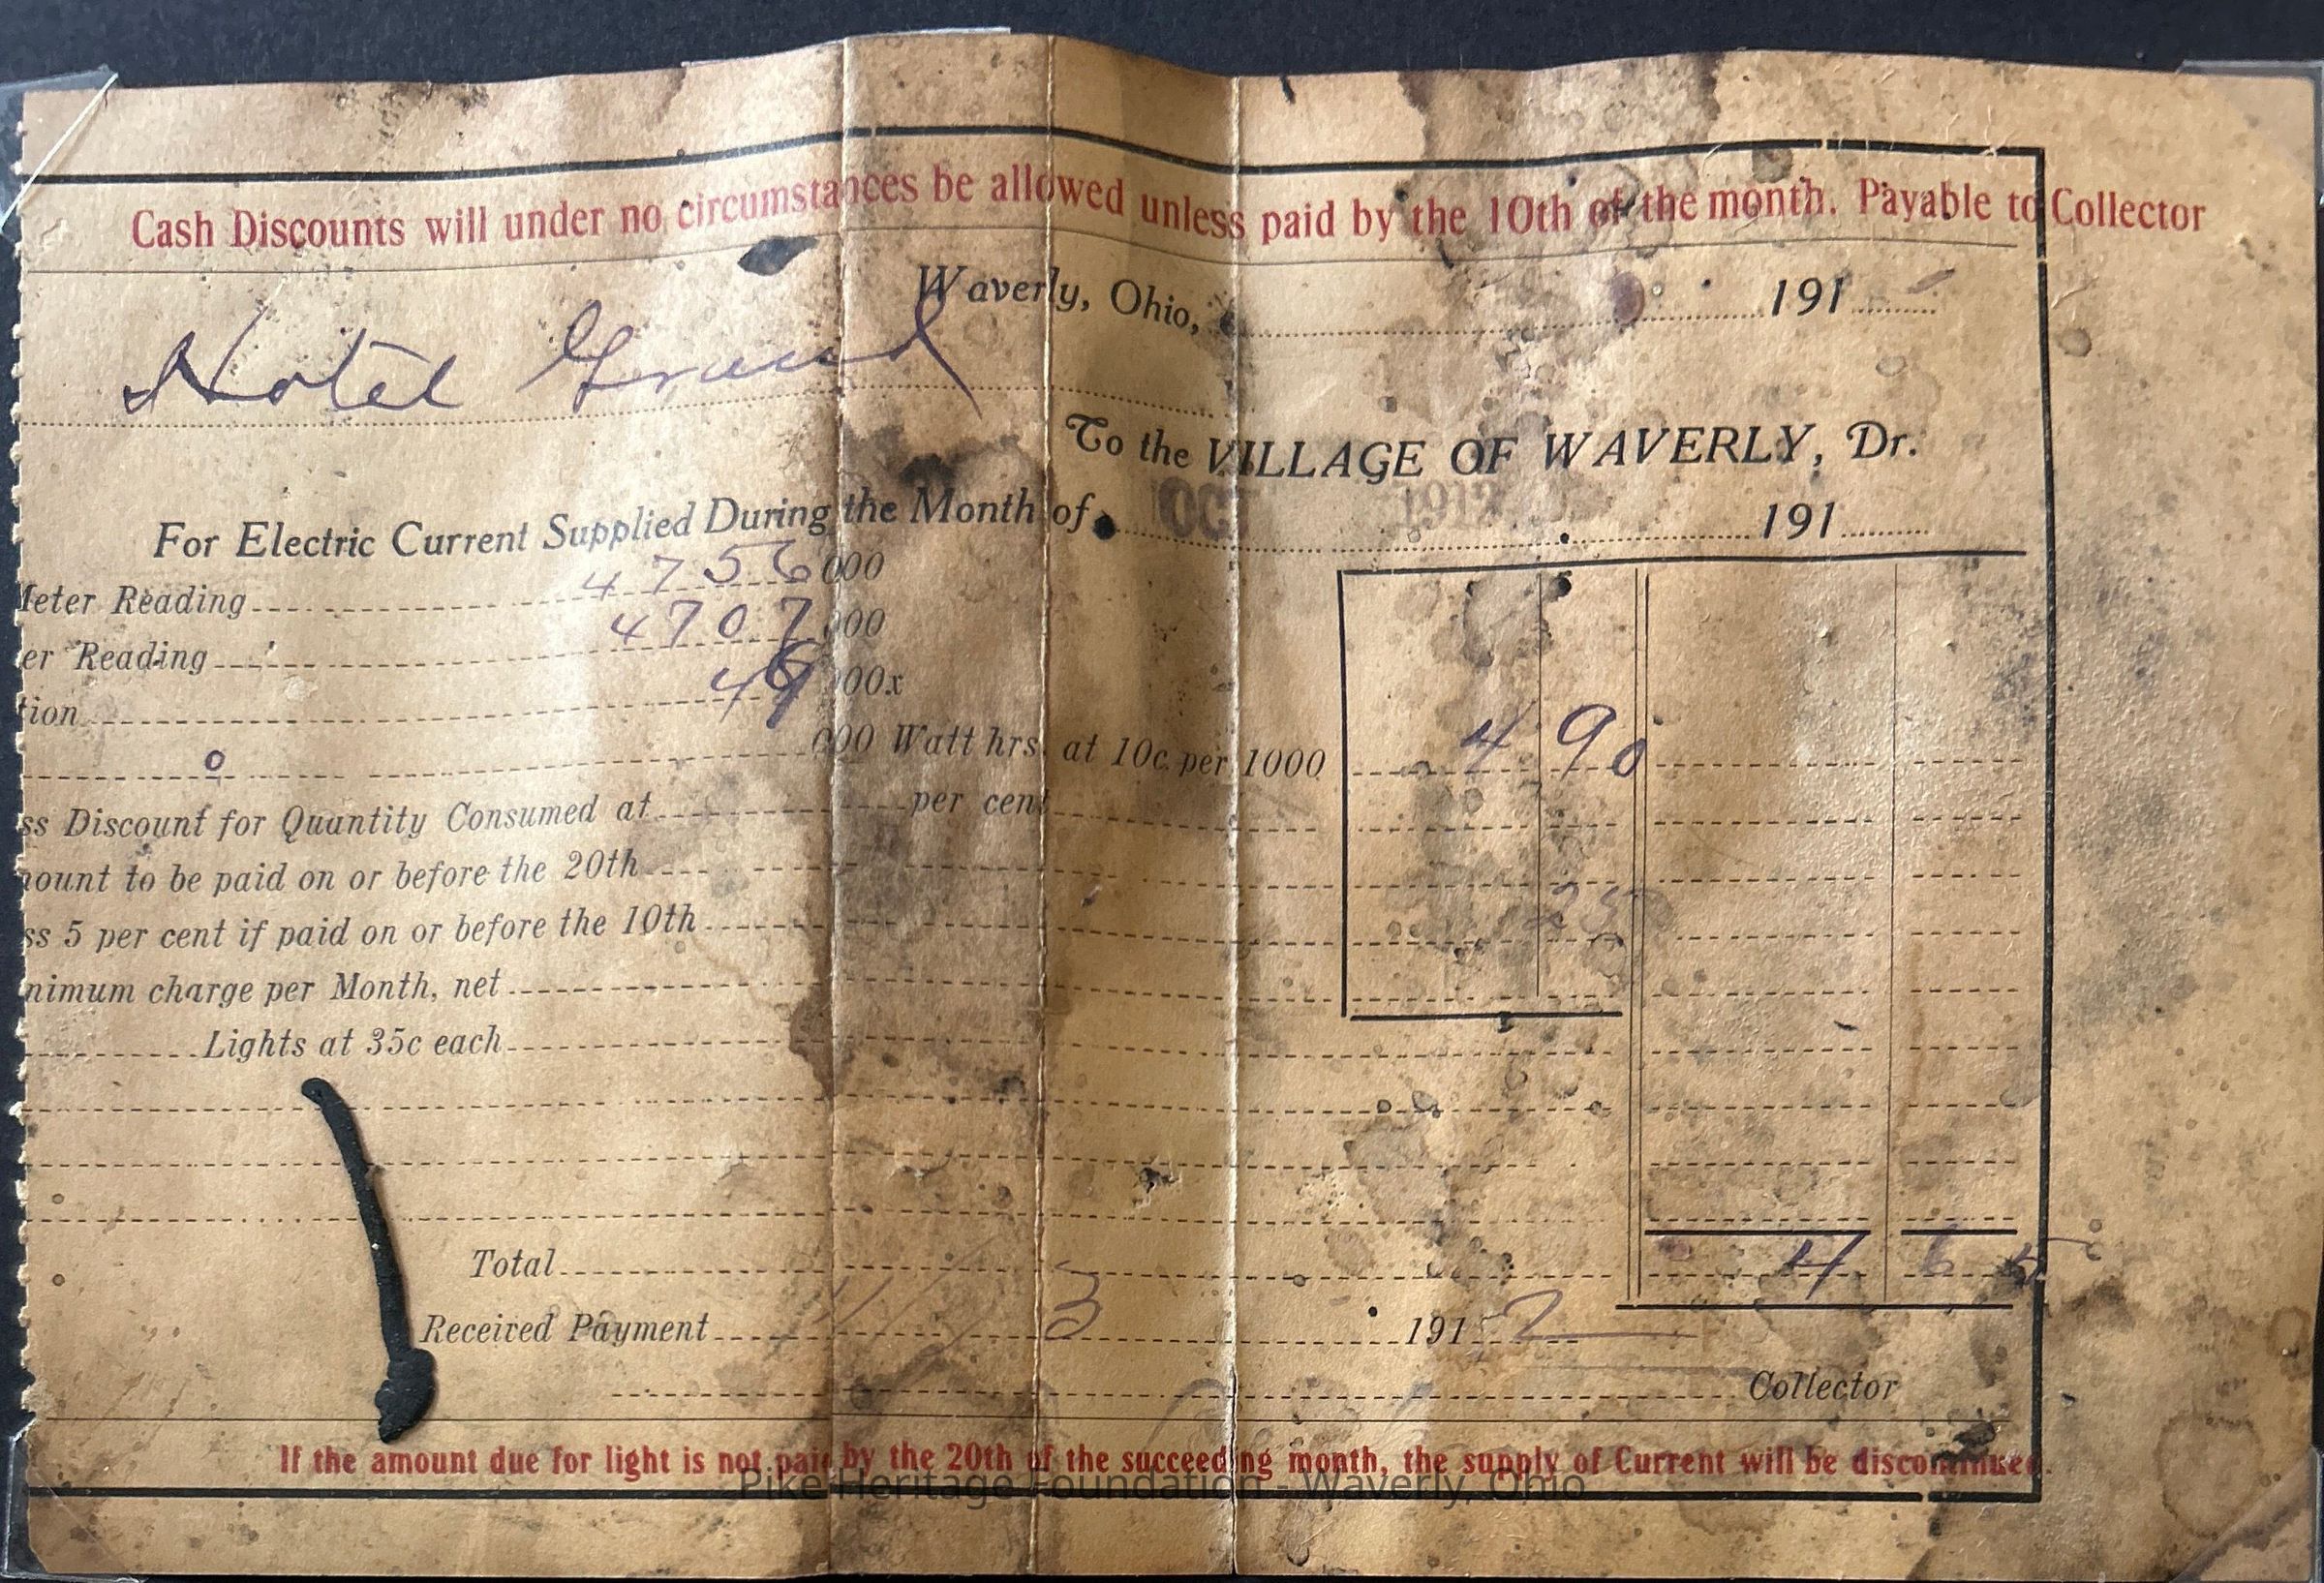 Cash Discounts will under no circumstances be allowed unless paid by the 10th of the month. Payable to Collector
Waverly, Ohio, 191
Hotel Grand
To the VILLAGE OF WAVERLY, Dr.
For Electric Current Supplied During the Month of OCT 1912 191
Meter Reading 4756 000
er Reading 4707 000
tion 49 000x
0 000 Watt hrs. at 10c per 1000 4 90
ss Discount for Quantity Consumed at per cent
mount to be paid on or before the 20th
ss 5 per cent if paid on or before the 10th 25
nimum charge per Month, net
Lights at 35c each
Total 4 65
Received Payment 11 3 191 2
Collector
If the amount due for light is not paid by the 20th of the succeeding month, the supply of Current will be discontinued.
Pike Heritage Foundation - Waverly, Ohio